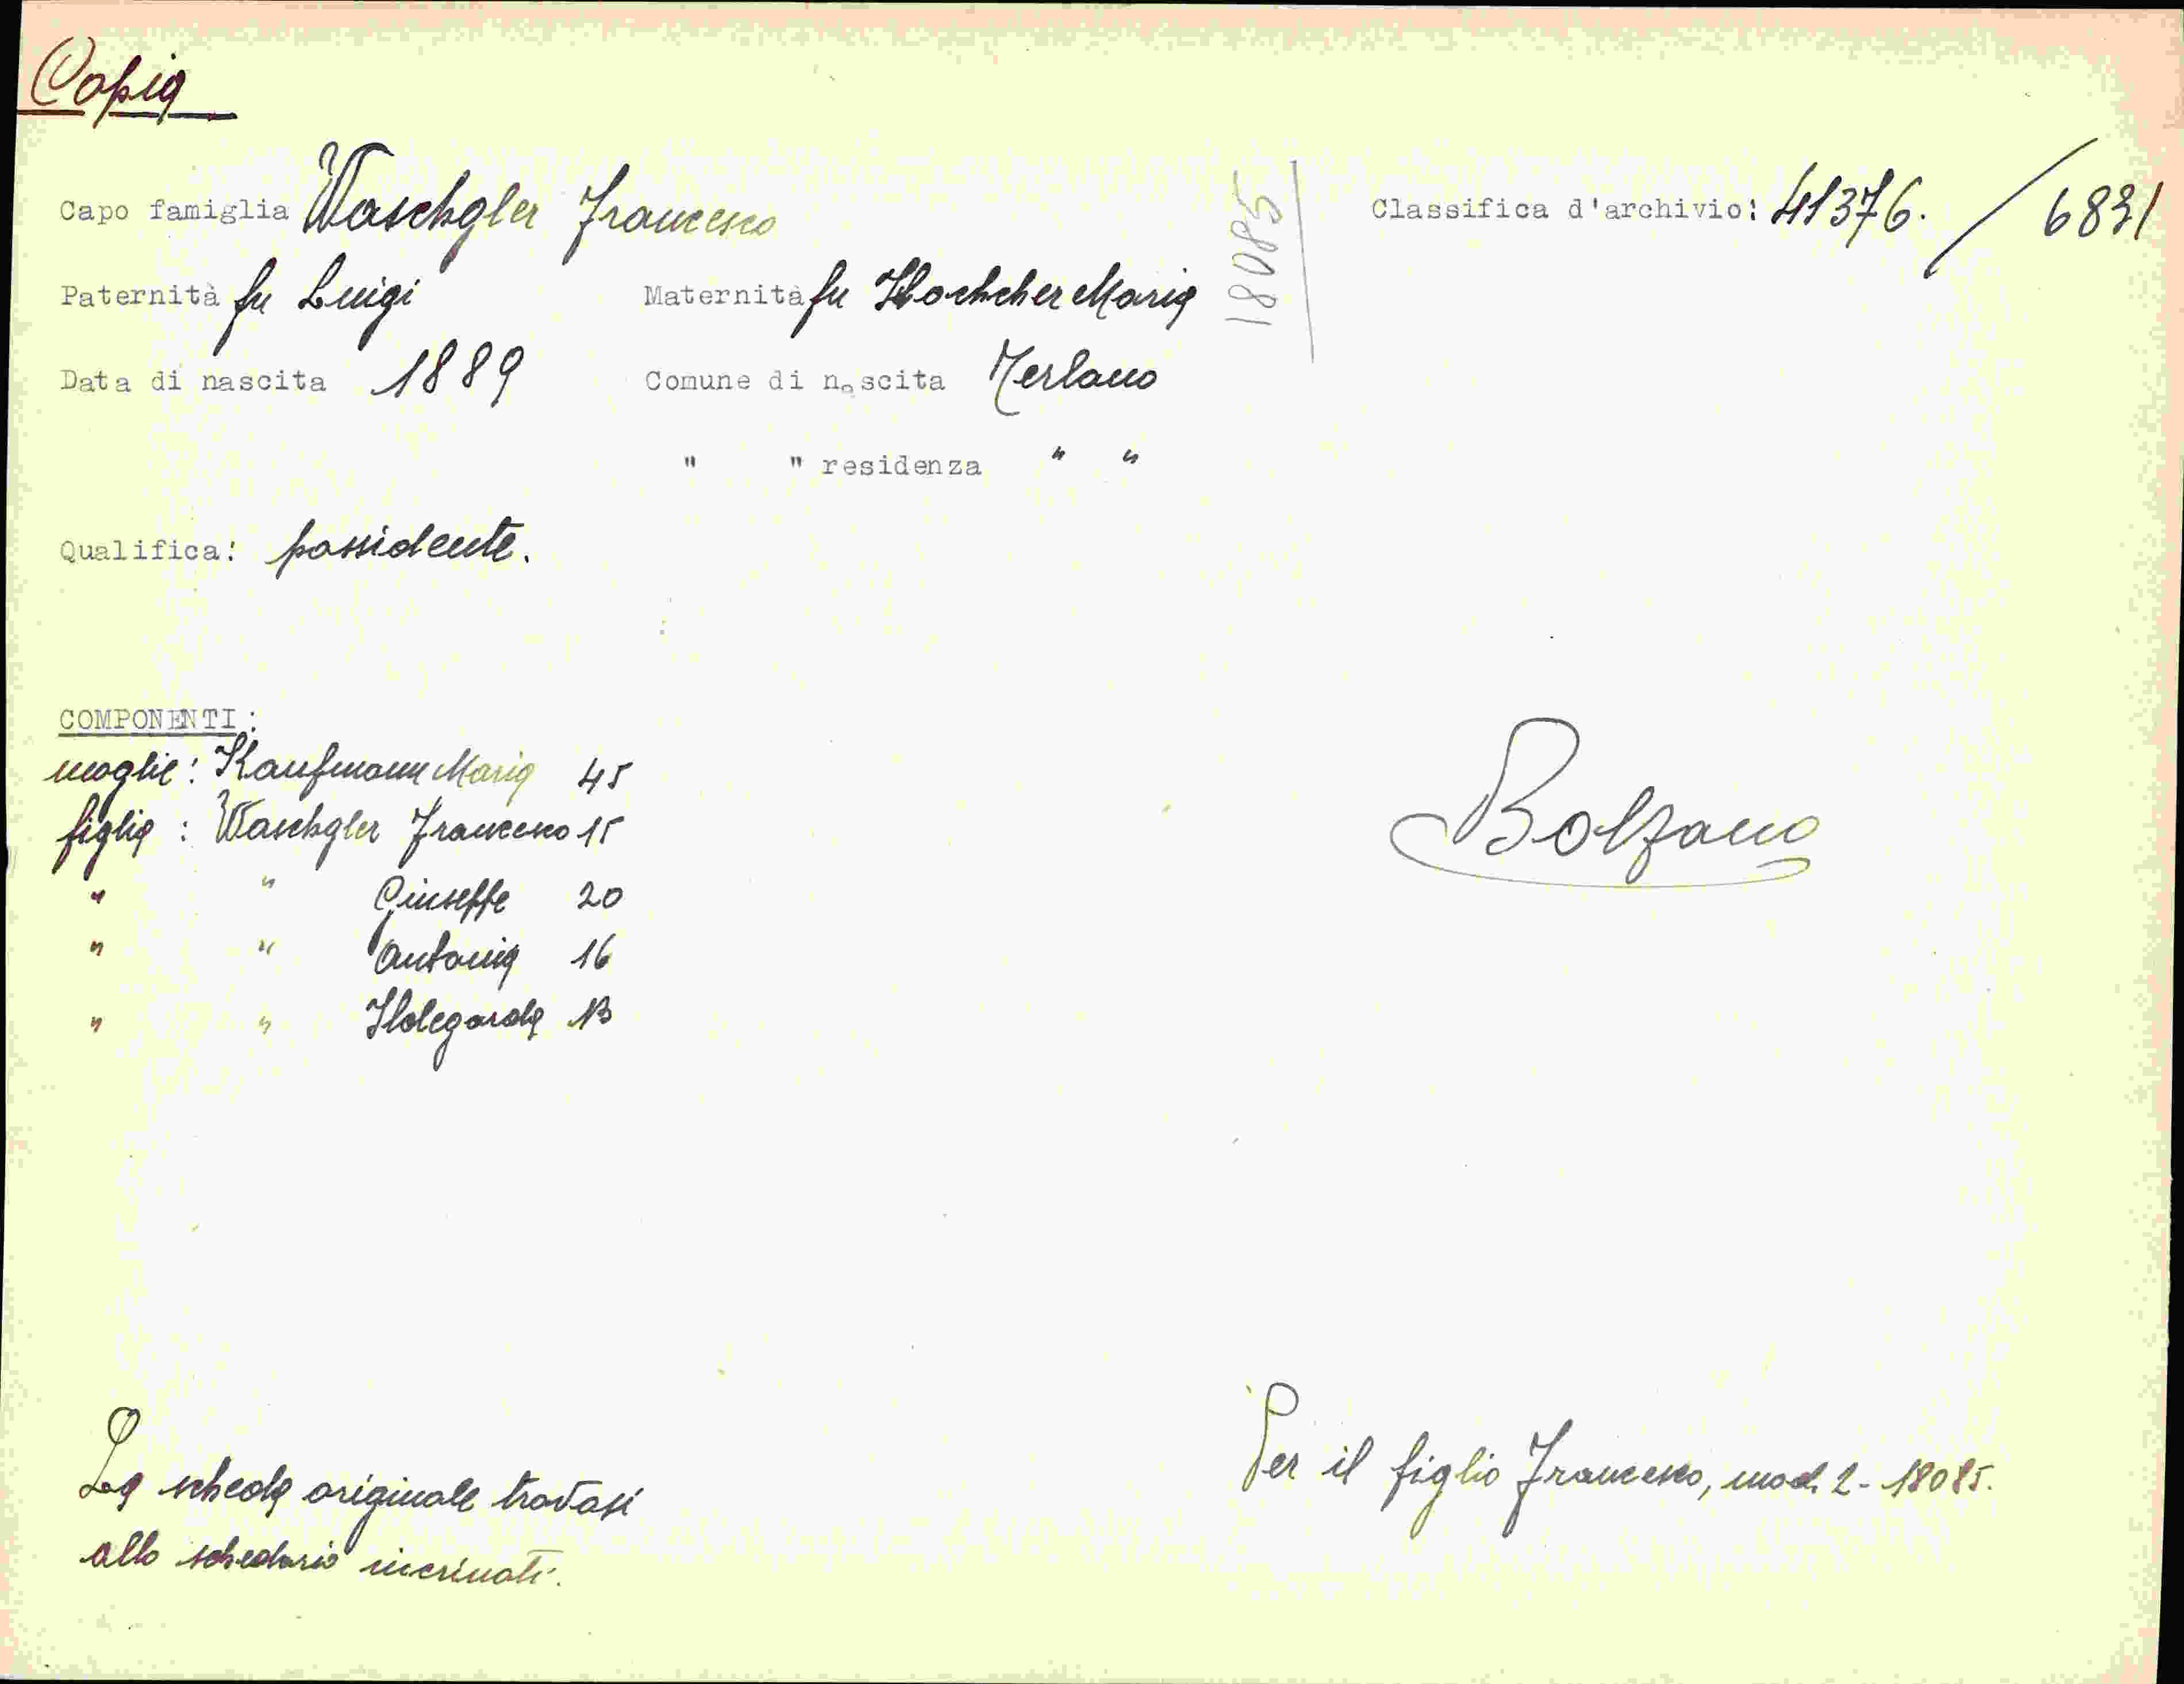 Copia
Capo famiglia Waschgler Francesco
Classifica d'archivio: 41376. / 6831
18085
Paternità fu Luigi Maternità fu Maria
Data di nascita 1889 Comune di nascita Terlano
" " residenza " "
Qualifica: possidente.
COMPONENTI:
moglie: Kaufmann Maria 45
figlia : Waschgler Francesco 15
" " Giuseppe 20
" " Antonia 16
" " Ildegarda 13
Bolzano
La scheda originale trovasi
allo schedario incrinati.
Per il figlio Francesco, mod. 2 - 18085.